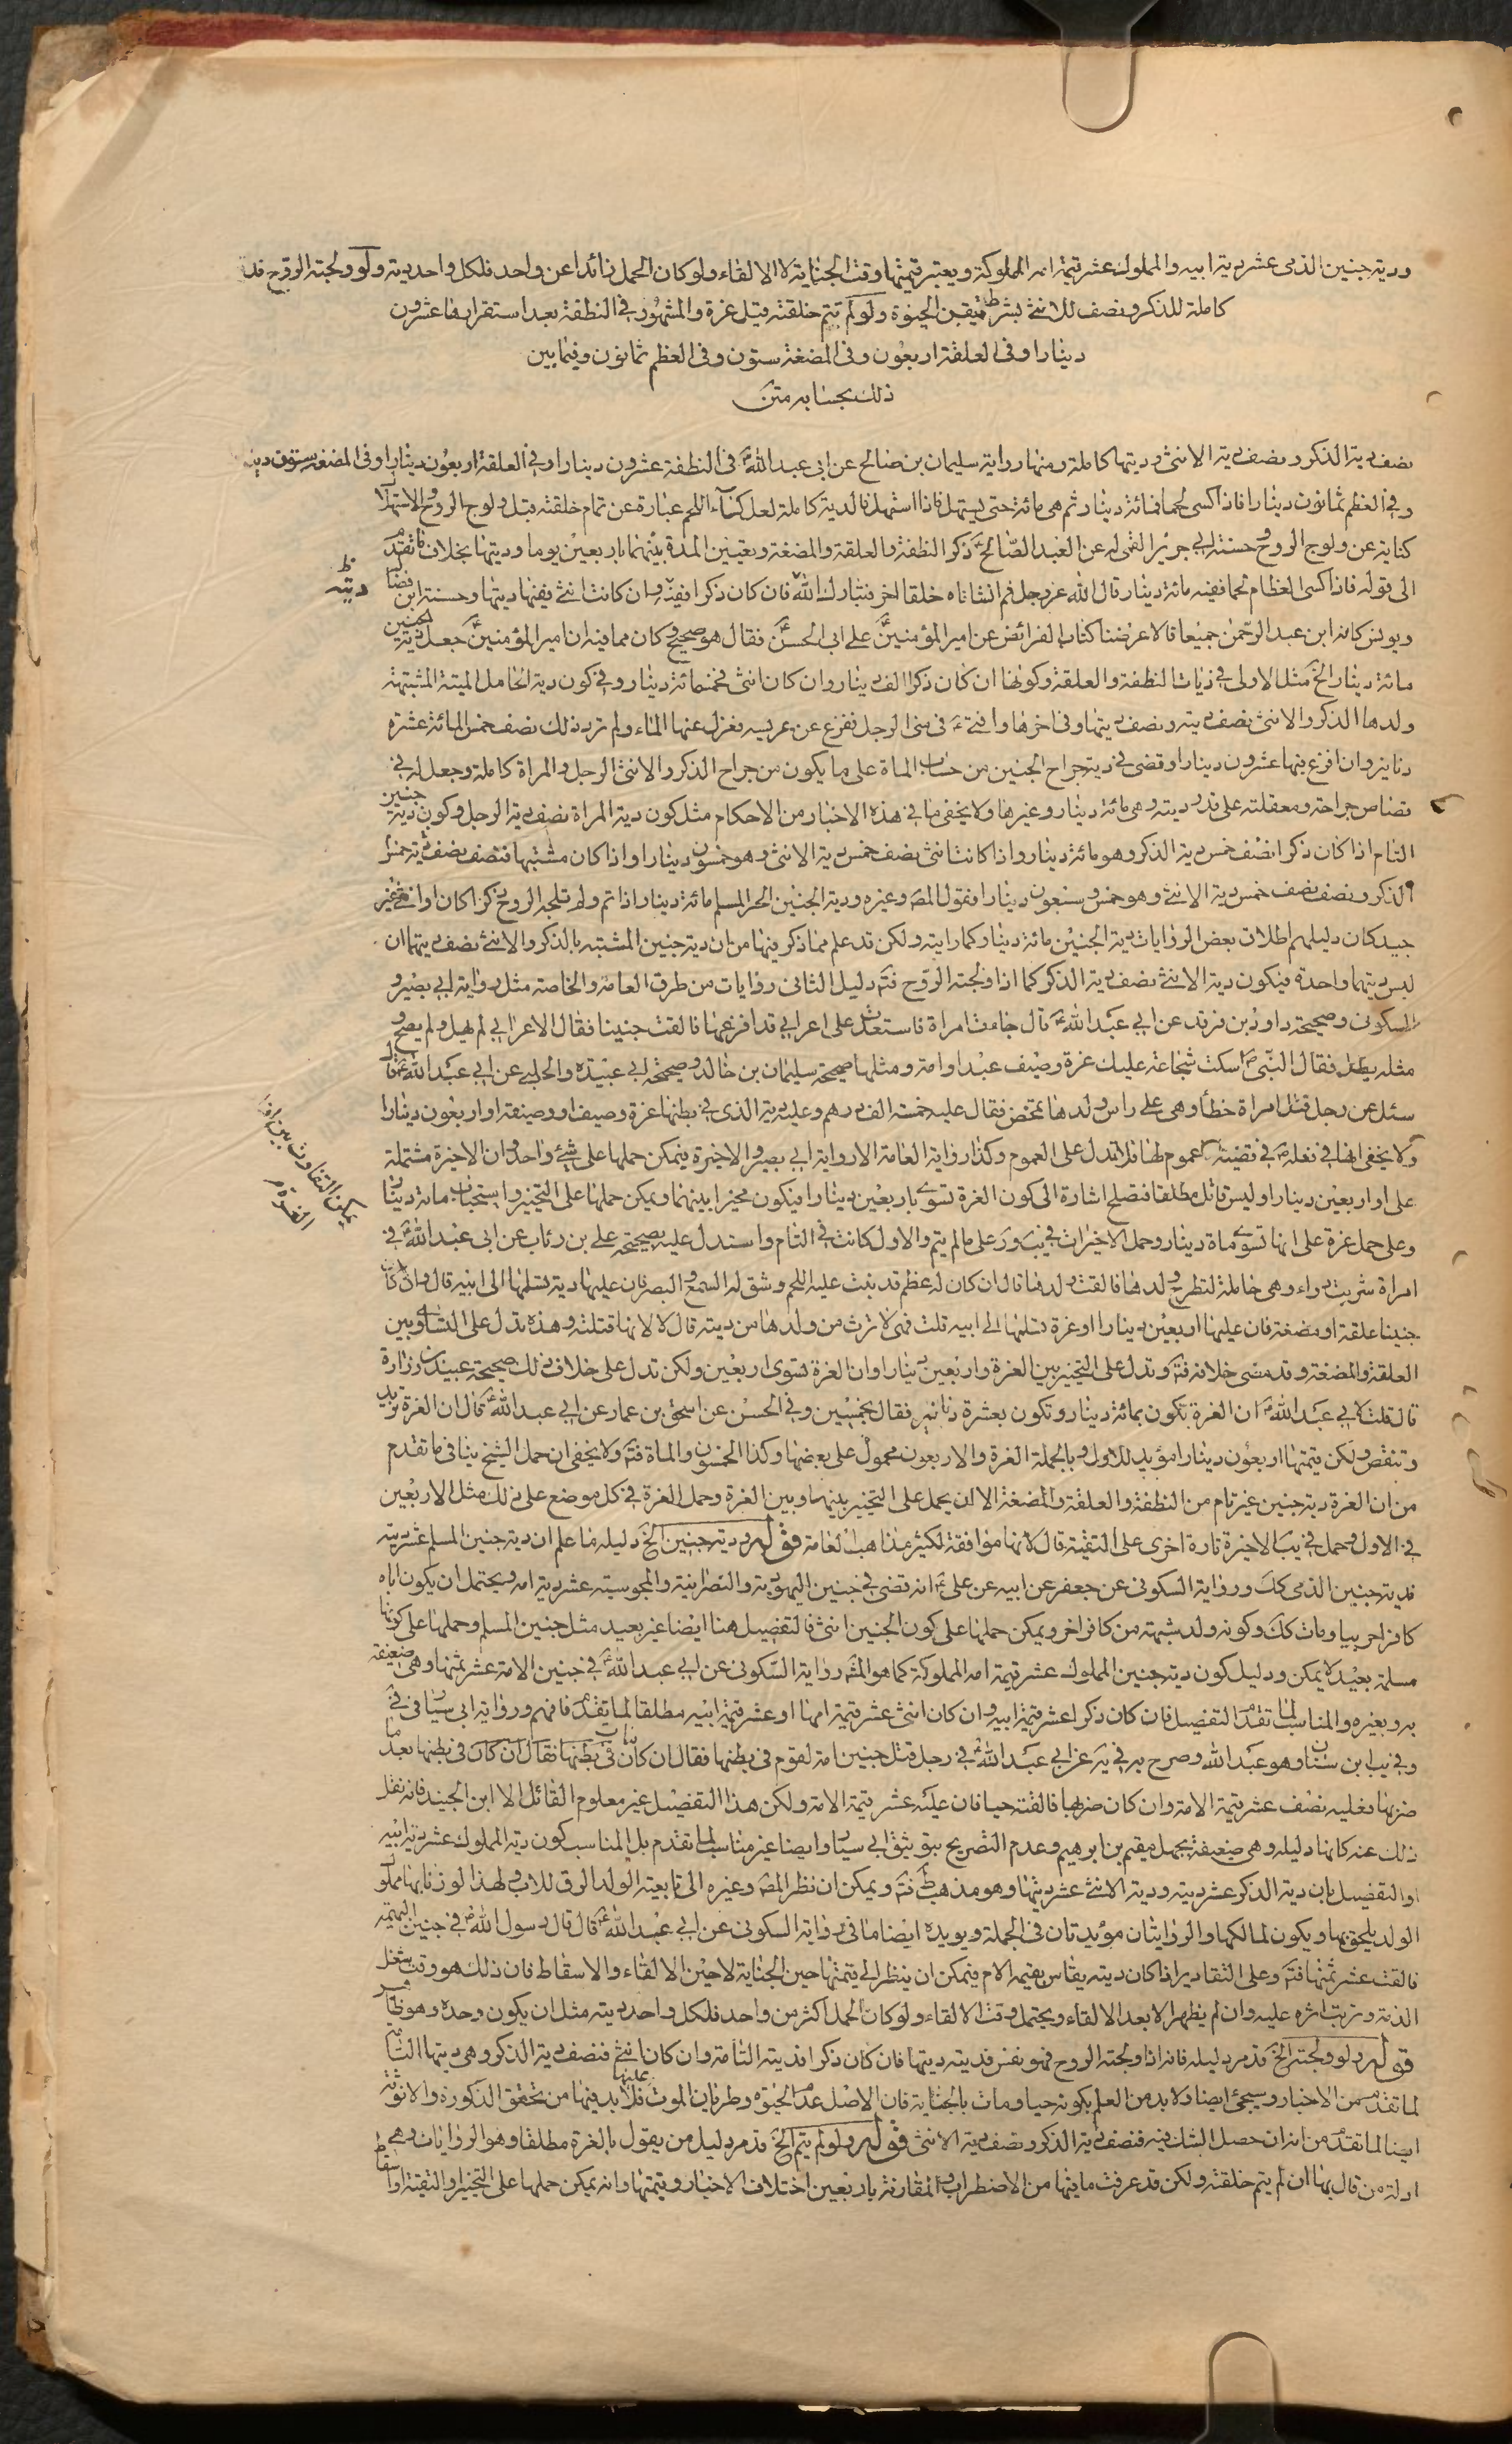 ودية جنين الذمى عشر دية ابيه والمملوك عشر قيمة امه المملوكة ويعتبر قيمتها وقت الجناية لا الالقاء ولو كان الحمل زائدا عن واحد فلكل واحد دية ولو ولجته الروح فدية
كاملة للذكر ونصف للانثى بشرط تيقن الحيوة ولو لم تتم خلقته قيل غرة والمشهور في النطفة بعد استقرارها عشرون
دينارا وفى العلقة اربعون وفى المضغة ستون وفى العظم ثمانون وفيما بين
ذلك بحسابه متن
نصف دية الذكر ونصف دية الانثى وديتها كاملة ومنها رواية سليمان بن صالح عن ابى عبد الله ع فى النطفة عشرون دينارا وفي العلقة اربعون دينارا وفى المضغة ستون دينارا
وفي العظم ثمانون دينارا فاذا كسى لحما فمائة دينار ثم هى مائة حتى يستهل فاذا استهل فالدية كاملة لعل كساء اللحم عبارة عن تمام خلقته قبل ولوج الروح والاستهلال
كناية عن ولوج الروح وحسنة ابي جرير القمى له عن العبد الصالح ع ذكر النطفة والعلقة والمضغة وتعيين المدة بينهما باربعين يوما وديتها بخلاف ما تقدم
الى قوله فاذا كسى العظام لحما ففيه مائة دينار قال الله عز وجل ثم انشاناه خلقا اخر فتبارك الله فان كان ذكرا ففيه وان كانت انثى ففيها ديتها وحسنة ابن فضال
ديته ظ
ويونس كانه ابن عبد الرحمن جميعا قالا عرضنا كتاب الفرائض عن امير المؤمنين ع على ابى الحسن ع فقال هو صحيح وكان مما فيه ان امير المؤمنين ع جعل دية الجنين
مائة دينار الخ مثل الاولى في ديات النطفة والعلقة وكونها ان كان ذكرا الف دينار وان كان انثى فخمسمائة دينار وفي كون دية الحامل الميتة المشتبهة
ولدها الذكر والانثى نصف ديته ونصف ديتها وفى اخرها وافتى ع فى منى الرجل تفزع عن عرسه فعزل عنها الماء ولم ترد ذلك نصف خمس المائة عشرة
دنانير وان افرغ فيها عشرون دينارا وقضى في دية جراح الجنين من حساب الماة على ما يكون من جراح الذكر والانثى الرجل والمراة كاملة وجعل له في
قصاص جراحته ومعقلته على قدر ديته وهى مائة دينار وغيرها ولا يخفى ما في هذه الاخبار من الاحكام مثل كون دية المراة نصف دية الرجل وكون دية جنين
التام اذا كان ذكرا نصف خمس دية الذكر وهو مائة دينار واذا كانت انثى نصف خمس دية الانثى وهو خمسون دينارا واذا كان مشتبها فنصف نصف دية خمس
الذكر ونصف نصف خمس دية الانثى وهو خمس وسبعون دينارا فقول المصـ وغيره ودية الجنين الحر المسلم مائة دينار اذا تم ولم تلجه الروح ذكرا كان او انثى غير
جيد كان دليلهم اطلاق بعض الروايات دية الجنين مائة دينار كما رايته ولكن قد علم مما ذكر فيها من ان دية جنين المشتبه بالذكر والانثى نصف ديتهما ان
ليس ديتهما واحدة فيكون دية الانثى نصف دية الذكر كما اذا ولجته الروح فتم دليل الثانى روايات من طرق العامة والخاصة مثل رواية ابي بصير و
السكونى وصحيحة داود بن فرقد عن ابي عبد الله ع قال جاءت امراة فاستعدت على اعرابي قد افزعها فالقت جنينا فقال الاعرابي لم يهل ولم يصح و
مثله يطل فقال النبي ص اسكت شجاعة عليك غرة وصيف عبد او امة ومثلها صحيحة سليمان بن خالد وصحيحة ابي عبيده والحلبي عن ابي عبد الله ع قال
سئل عن رجل قتل امراة خطأ وهى على راس ولدها تمخض فقال عليه خمسة الف درهم وعليه دية الذى في بطنها غرة وصيف او وصيفة او اربعون دينارا
ولا يخفى انها في نقله ص في قضية لا عموم لها فلا تدل على العموم وكذا رواية العامة الا رواية ابي بصير والاخيرة فيمكن حملها على شئ واحد وان الاخيرة مشتملة
على او اربعين دينارا وليس قائل مطلقا فتصلح اشارة الى كون الغرة تسوى باربعين دينارا فيكون مخيرا بينهما ويمكن حملها على التخيير واستحباب مائة دينار
يمكن التفاوت بين افراد الغرة م
وعلى حمل غرة على انها تسوى ماة دينار وحمل الاخيرات في يب ور على ما لم يتم والاول كانت في التام واستدل عليه بصحيحة على بن رئاب عن ابى عبد الله ع في
امراة شربت دواء وهى حاملة لتطرح ولدها فالقت ولدها قال ان كان له عظم قد نبت عليه اللحم وشق له السمع والبصر فان عليها دية تسلمها الى ابيه قال وان كان
جنينا علقة او مضغة فان عليها اربعين دينارا او غرة تسلمها الى ابيه قلت فهى لا ترث من ولدها من ديته قال لا لانها قتلته وهذه تدل على التساوي بين
العلقة والمضغة وقد مضى خلافه فتم وتدل على التخيير بين الغرة واربعين دينارا وان الغرة تسوى اربعين ولكن تدل على خلاف ذلك صحيحة عبيد بن زرارة
قال قلت لابي عبد الله ع ان الغرة تكون بمائة دينار وتكون بعشرة دنانير فقال بخمسين وفي الحسن عن اسحق بن عمار عن ابي عبد الله ع قال ان الغرة تزيد
وتنقص ولكن قيمتها اربعون دينارا مؤيد للاول وبالجملة الغرة والاربعون محمول على بعضها وكذا الخمسون والماة فتم ولا يخفى ان حمل الشيخ ينافى ما تقدم
من ان الغرة دية جنين غير تام من النطفة والعلقة والمضغة الا ان يحمل على التخيير بينهما وبين الغرة وحمل الغرة في كل موضع على ذلك مثل الاربعين
في الاول وحمل في يب الاخيرة تارة اخرى على التقية قال لانها موافقة لكثير مذاهب العامة قوله ودية جنين الخ دليله ما علم ان دية جنين المسلم عشر ديته
فدية جنين الذمى كك ورواية السكونى عن جعفر عن ابيه عن على ع انه قضى في جنين اليهودية والنصرانية والمجوسية عشر دية امه ويحتمل ان يكون اباه
كافرا حربيا ومات كك وكونه ولد شبهته من كافر اخر ويمكن حملها على كون الجنين انثى فالتفصيل هنا ايضا غير بعيد مثل جنين المسلم وحملها على كونها
مسلمة بعيد لا يمكن ودليل كون دية جنين المملوك عشر قيمة امه المملوكة كما هو المشهـ رواية السكونى عن ابي عبد الله ع في جنين الامة عشر ثمنها وهى ضعيفة
به وبغيره والمناسب لما تقدم التفصيل فان كان ذكرا عشر قيمة ابيه وان كان انثى عشر قيمة امها او عشر قيمة ابيه مطلقا لما تقدم فافهم ورواية ابى سيار فى في
وفي يب ابن سنان وهو عبد الله وصرح به فى يه عن ابي عبد الله ع في رجل قتل جنين امة لقوم فى بطنها فقال ان كان مات في بطنها فقال ان كان فى بطنها بعد ما
ضربها فعليه نصف عشر قيمة الامة وان كان ضربها فالقته حيا فان عليه عشر قيمة الامة ولكن هذا التفصيل غير معلوم القائل الا ابن الجنيد فانه نقل
ذلك عنه كانها دليله وهى ضعيفة بجهل مقيم بن ابرهيم وعدم التصريح بتوثيق ابى سيار وايضا غير مناسب لما تقدم بل المناسب كون دية المملوك عشر دية ابيه
او التفصيل بان دية الذكر عشر ديته ودية الانثى عشر ديتها وهو مذهب ط فتم ويمكن ان نظر المصـ وغيره الى تابعية الولد الرق للاب ولهذا لو زنا بها مملوك
الولد يلحق بها ويكون لمالكها والروايتان مؤيدتان فى الجملة ويؤيده ايضا ما فى رواية السكونى عن ابي عبد الله ع قال قال رسول الله ص في جنين البهيمة
فالقت عشر ثمنها فتم وعلى التقادير اذا كان ديته يقاس بقيمة الام فيمكن ان ينظر الى قيمتها حين الجناية لا حين الالقاء والاسقاط فان ذلك هو وقت شغل
الذمة وترتب اثره عليه وان لم يظهر الا بعد الالقاء ويحتمل وقت الالقاء ولو كان الحمل اكثر من واحد فلكل واحد ديته مثل ان يكون وحده وهو ظاهر
قوله ولو ولجته الخ قد مر دليله فانه اذا ولجته الروح فهو نفس فديته ديتها فان كان ذكرا فديته التامة وان كان انثى فنصف دية الذكر وهى ديتها التامة
لما تقدم من الاخبار وسيجئ ايضا ولا بد من العلم بكونه حيا ومات بالجناية فان الاصل عدم الحيوة وطريان الموت عليها فلا بد فيها من تحقق الذكورة والانوثة
ايضا لما تقدم من انه ان حصل الشك فيه فنصف دية الذكر ونصف دية الانثى قوله ولو لم يتم الخ قد مر دليل من يقول بالغرة مطلقا وهو الروايات وهى
ادلة من قال بها ان لم يتم خلقته ولكن قد عرفت ما فيها من الاضطراب والمقارنة باربعين اختلاف الاخبار وقيمتها وانه يمكن حملها على التخيير والتقية او اسقاط